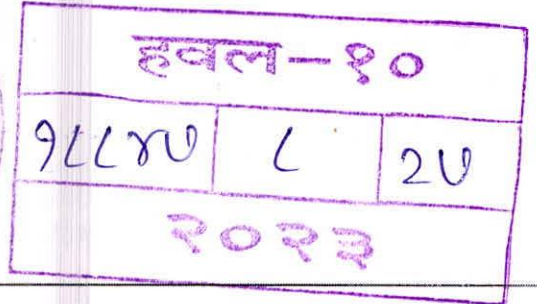 हवल-१०
१८८४७ ८ २७
२०२३